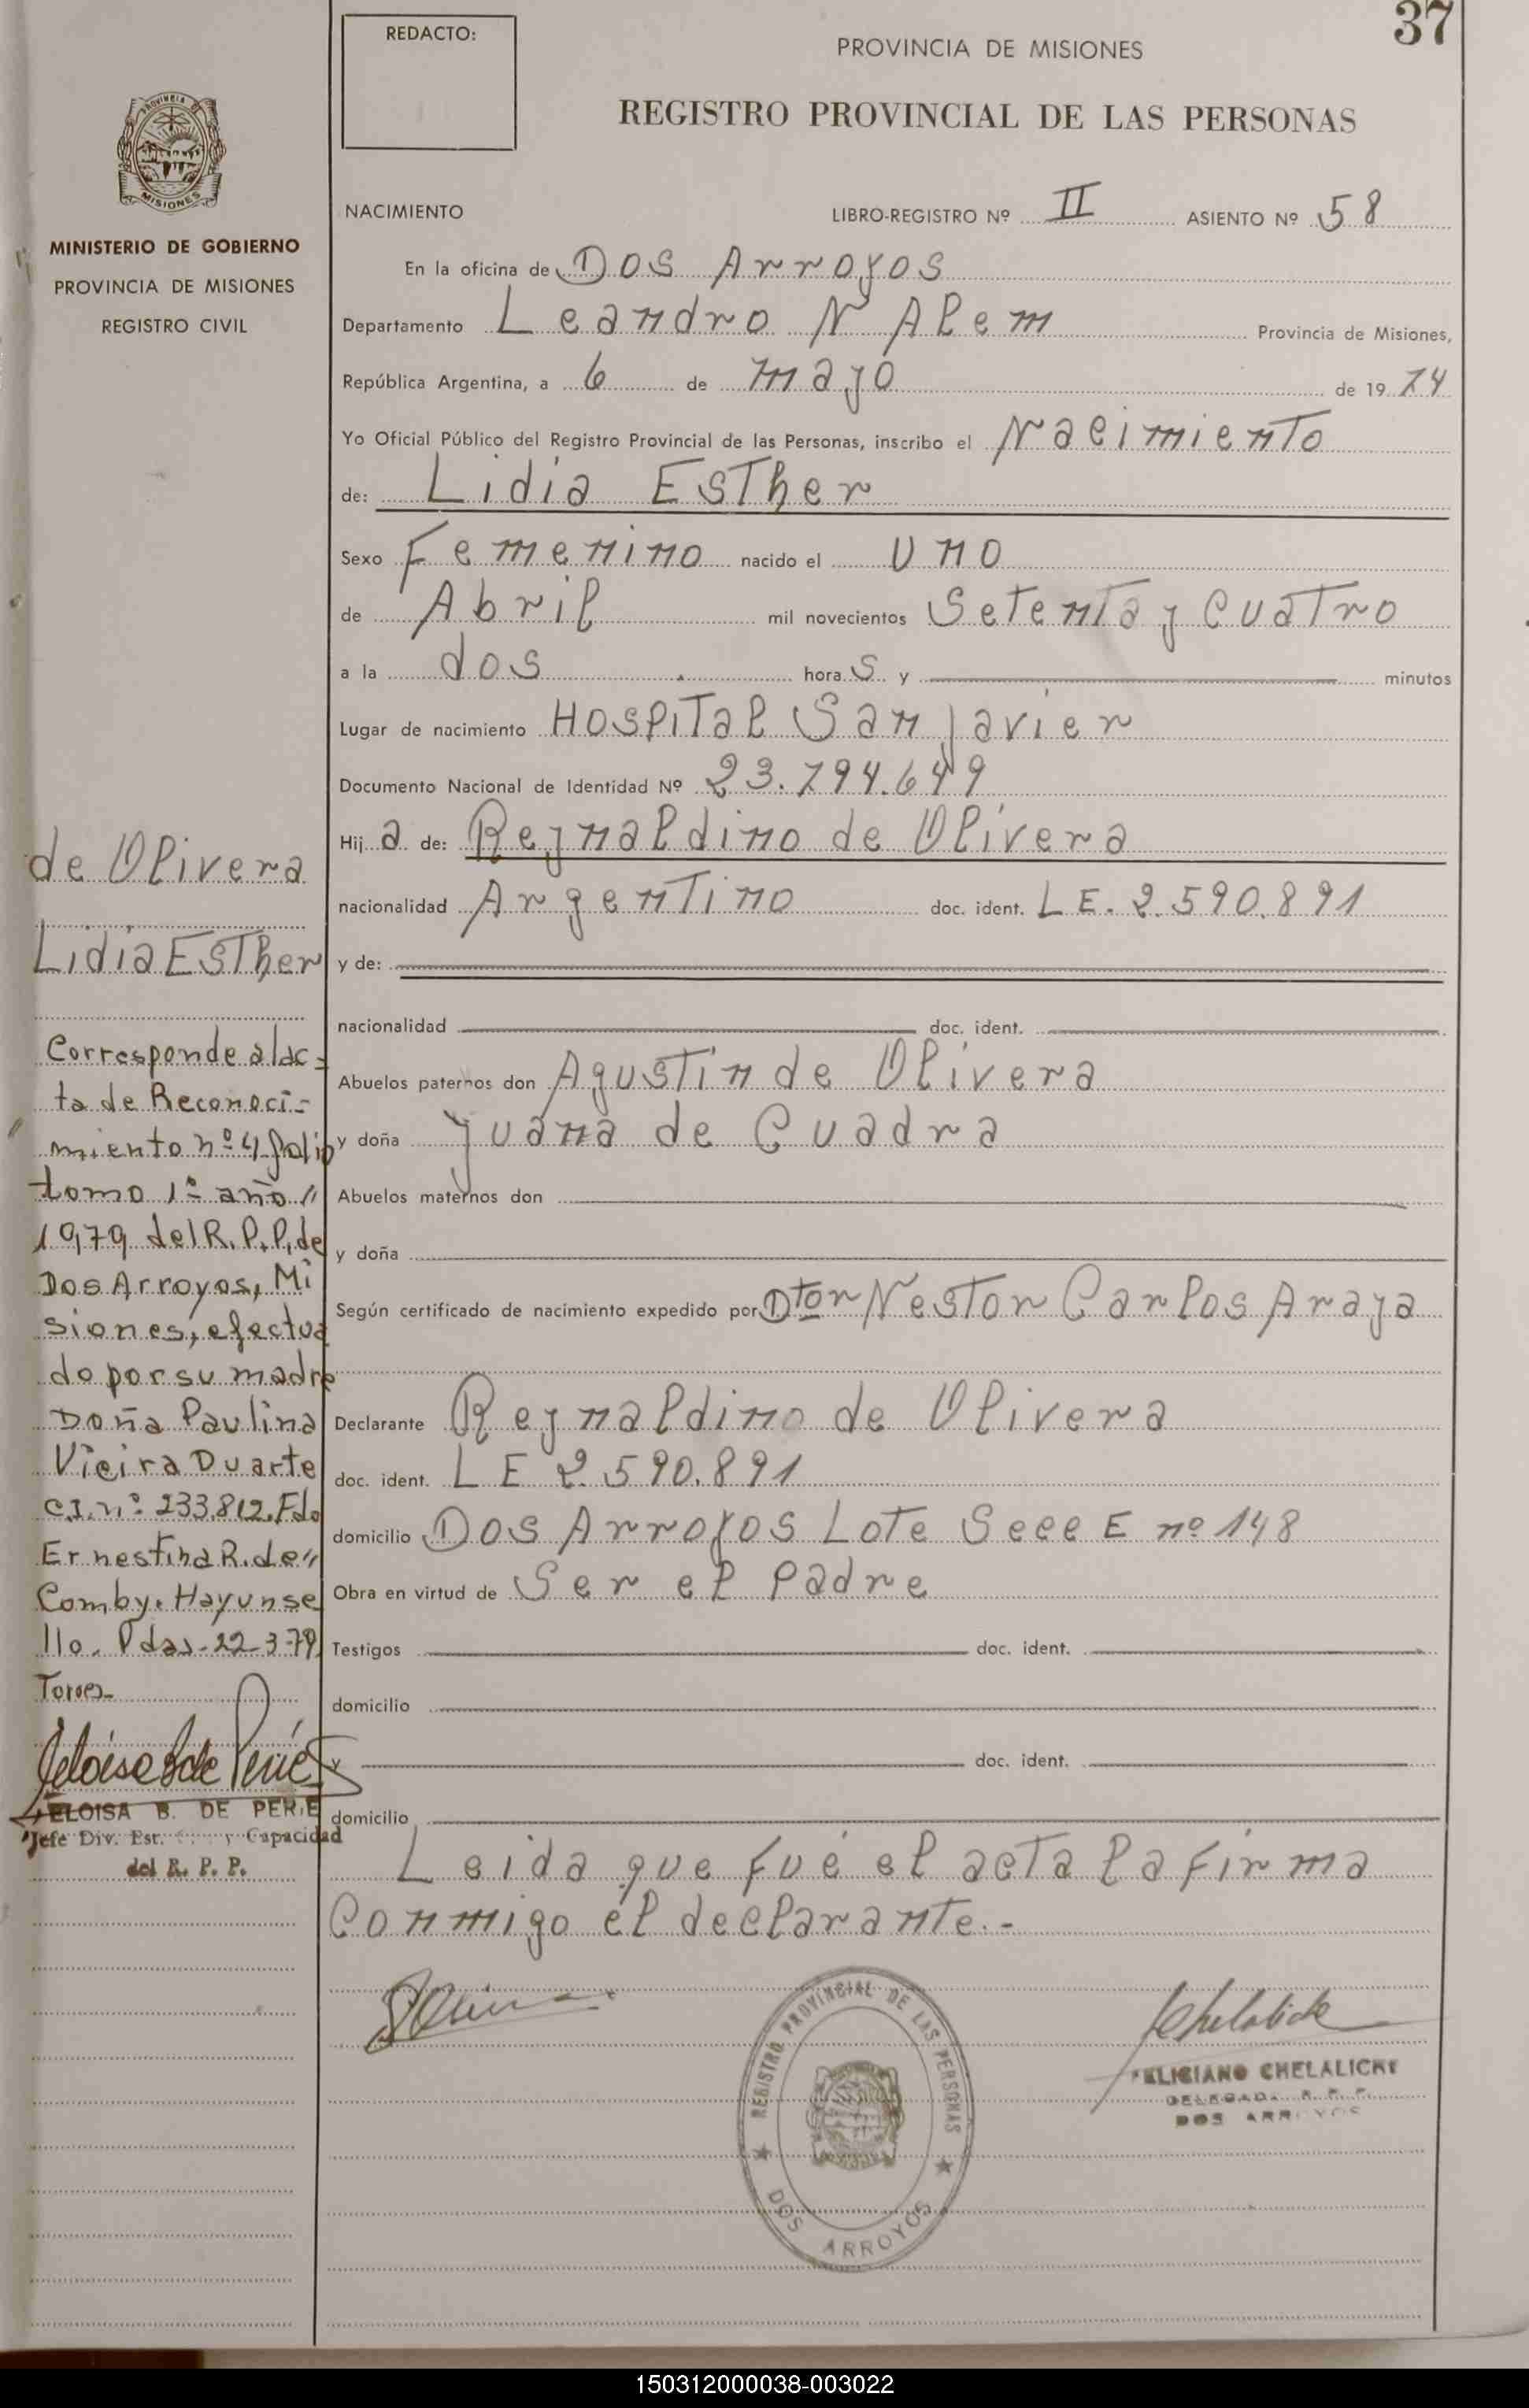 37
REDACTO:
PROVINCIA DE MISIONES
REGISTRO PROVINCIAL DE LAS PERSONAS
PROVINCIA DE
MISIONES
MINISTERIO DE GOBIERNO
PROVINCIA DE MISIONES
REGISTRO CIVIL
NACIMIENTO LIBRO-REGISTRO Nº II ASIENTO Nº 58
En la oficina de Dos Arroyos
Departamento Leandro N Alem Provincia de Misiones,
República Argentina, a 6 de mayo de 1974
Yo Oficial Público del Registro Provincial de las Personas, inscribo el Nacimiento
de: Lidia Esther
Sexo Femenino nacido el uno
de Abril mil novecientos Setenta y Cuatro
a la dos hora s y minutos
Lugar de nacimiento Hospital San Javier
Documento Nacional de Identidad Nº 23.794.649
Hij a de: Reynaldino de Olivera
nacionalidad Argentino doc. ident. L E. 2.590.891
y de:
nacionalidad doc. ident.
Abuelos paternos don Agustin de Olivera
y doña Juana de Cuadra
Abuelos maternos don
y doña
Según certificado de nacimiento expedido por Dtor Nestor Carlos Araya
Declarante Reynaldino de Olivera
doc. ident. L E 2.590.891
domicilio Dos Arroyos Lote Secc E nº 148
Obra en virtud de Ser el padre
Testigos doc. ident.
domicilio
y doc. ident.
domicilio
Leida que fué el acta la firma
Conmigo él declarante.-
de Olivera
Lidia Esther
Corresponde al ac=
ta de Reconoci=
miento nº 4 folio
tomo 1º año "
1979 del R.P.P. de
Dos Arroyos, Mi
siones, efectua
do por su madre
Doña Paulina
Vieira Duarte
C.I. nº 233.812. Fdo
Ernestina R. de "
Comby. Hay un se
llo. Pdas-22-3-79
Torres-
ELOISA B. DE PERIE
Jefe Div. Est. y Capacidad
del R. P. P.
REGISTRO PROVINCIAL DE LAS PERSONAS
DOS ARROYOS
FELICIANO CHELALICHE
DELEGADO R. P. P.
DOS ARROYOS
150312000038-003022